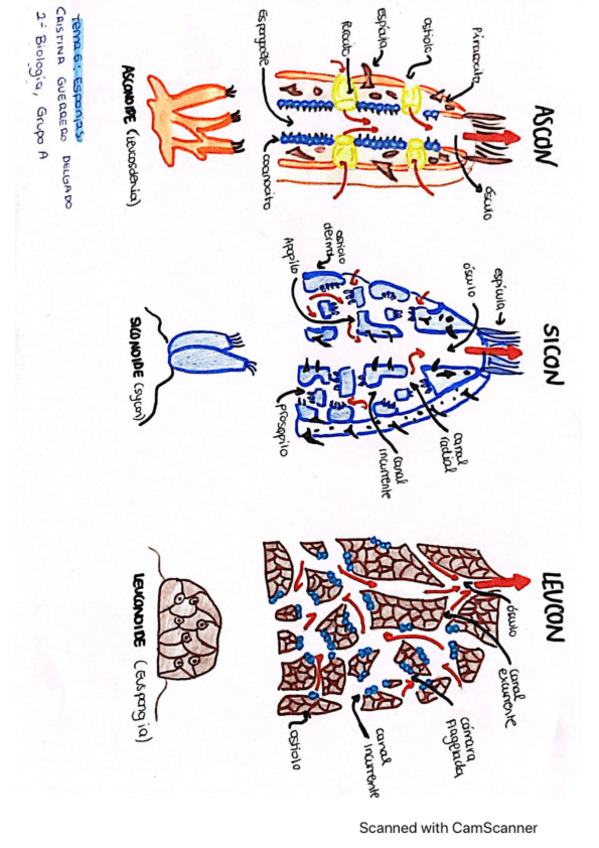 Tema 6: Esponjas
CRISTINA GUERRERO DELGADO
2º Biología, Grupo A
ASCON
Pinacocito
ostiolo
espícula
Porocito
Espongocele
ósculo
coanocito
ASCONOIDE (Leucosolenia)
SICON
espícula
ósculo
ostiolo
dermal
Apopilo
canal
radial
canal
incurrente
prosopilo
SICONOIDE (Sycon)
LEUCON
ósculo
canal
excurrente
cámara
flagelada
canal
incurrente
ostiolo
LEUCONOIDE (Euspongia)
Scanned with CamScanner